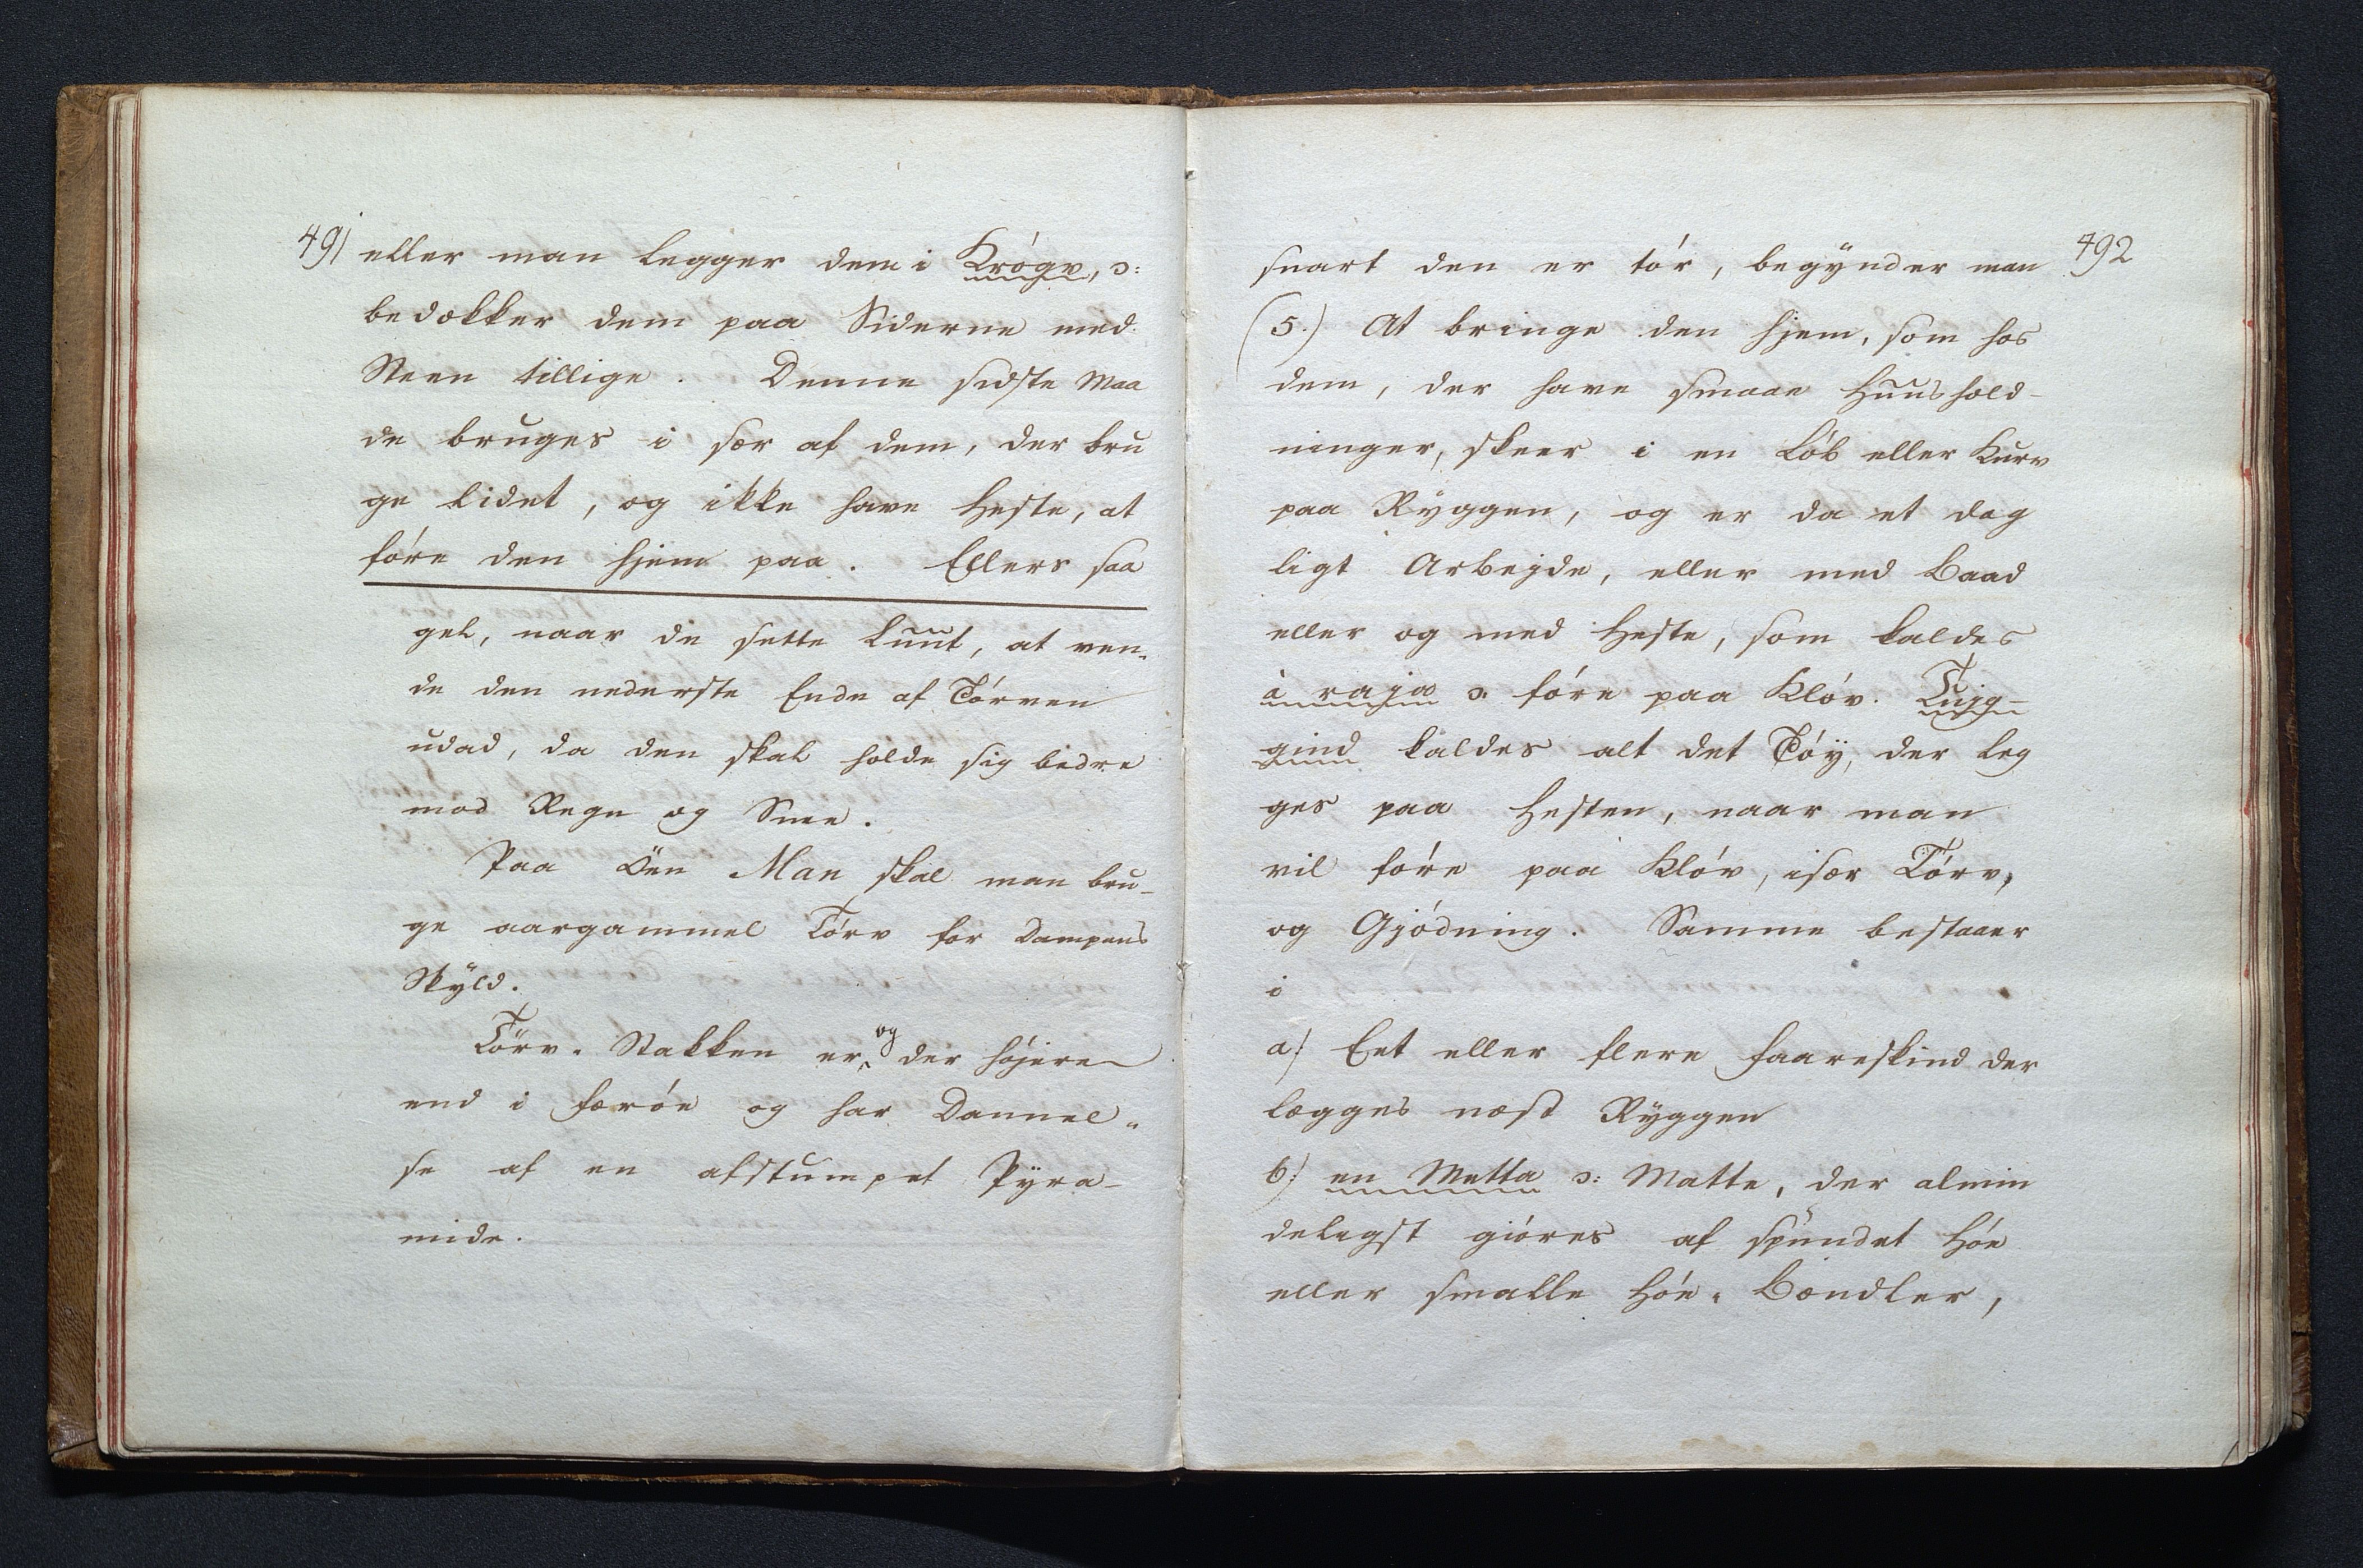 491
eller man legger dem i Krógv, ɔ:
bedækker dem paa Siderne med
Steen tillige. Denne sidste Maa
de bruges i sær af dem, der bru
ge lidet, og ikke have Heste, at
fóre den hjem paa. Ellers saa
gel, naar de sette Luut, at ven-
de den nederste Ende af Tórven
udad, da den skal holde sig bedre
mod Regn og Snee.
Paa Öen Man skal man bru-
ge aargammel Tórv for Dampens
Skÿld.
Törv-Stakken er og der hójere
end i Færóe og har Dannel-
se af en afstumpet Pÿra-
mide.
492
snart den er tór, begÿnder man
(5.) At bringe den hjem, som hos
dem, der have smaae Huushold-
ninger, skeer i en Lób eller Kurv
paa Rÿggen, og er da et dag
ligt Arbejde, eller med Baad
eller og med Heste, som kaldes
à raja ɔ: fóre paa Klóv. Tujg-
gind kaldes alt det Tóÿ, der leg
ges paa Hesten, naar man
vil fóre paa Klóv, især Tórv,
og Gjódning. Samme bestaaer
i
a) Eet eller flere Faareskind der
lægges næst Rÿggen
b) en Metta ɔ: Matte, der almin
deligst gióres af spundet Hóe
eller smalle Hóe-Bændler,